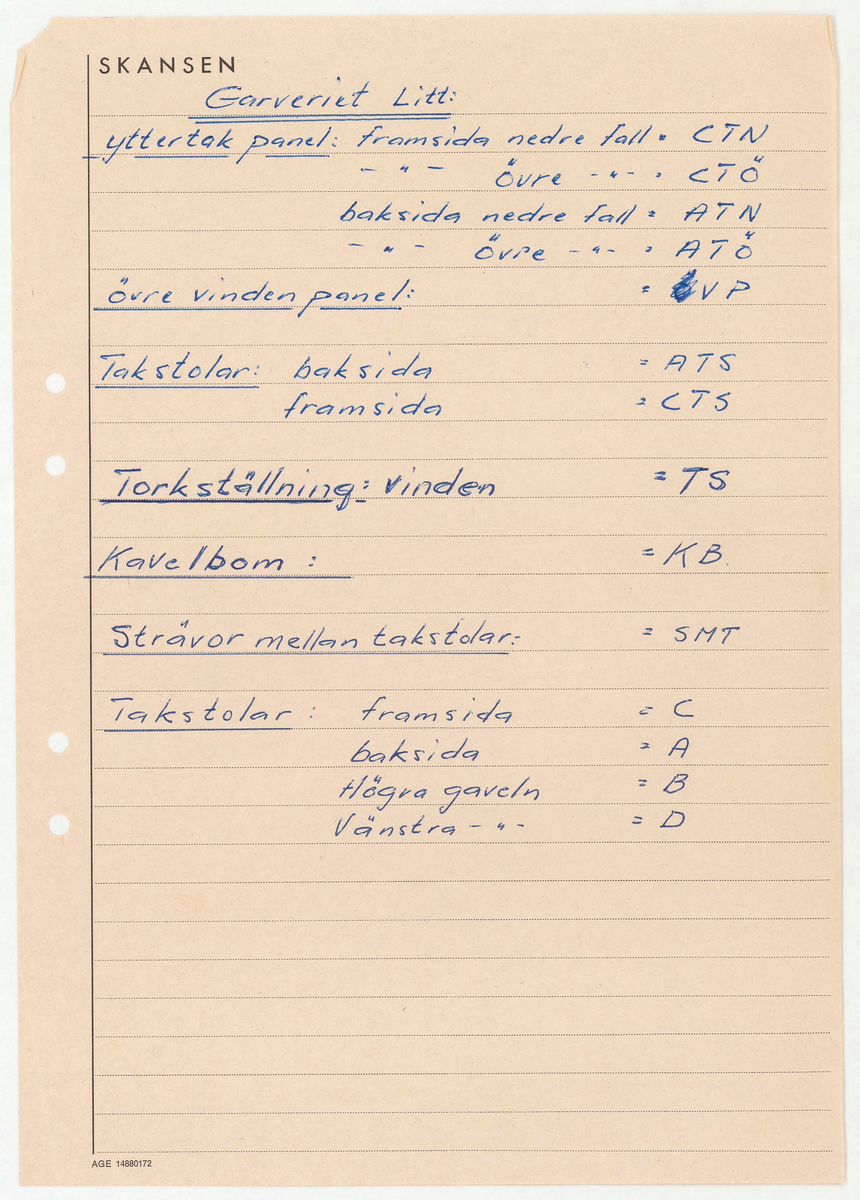 SKANSEN
Garveriet Litt:
yttertak panel: framsida nedre fall = CTN
– " – Övre – " – = CTÖ
baksida nedre fall = ATN
– " – Övre – " – = ATÖ
övre vinden panel: = VP
Takstolar: baksida = ATS
framsida = CTS
Torkställning: vinden = TS
Kavelbom : = KB
Strävor mellan takstolar: = SMT
Takstolar : framsida = C
baksida = A
Högra gaveln = B
Vänstra – " – = D
AGE 14880172